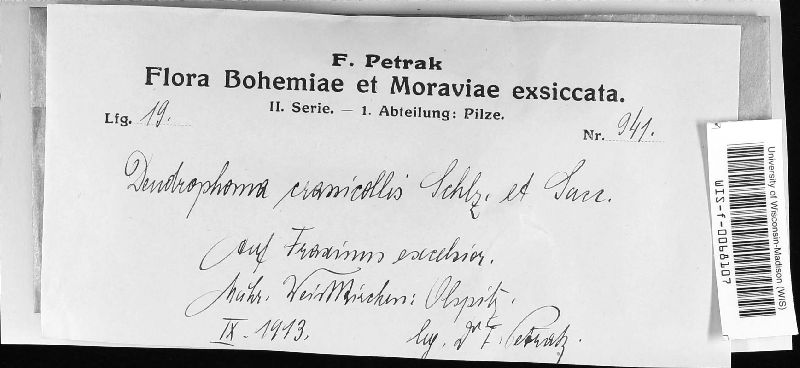 F. Petrak
Flora Bohemiae et Moraviae exsiccata.
II. Serie. — 1. Abteilung: Pilze.
Lfg. 19.
Nr. 941.
Dendrophoma cranicollis Schlz. et Sacc.
Auf Fraxinus excelsior.
Mähr. Weisskirchen: Olspitz.
IX. 1913.
leg. Dr F. Petrak.
University of Wisconsin-Madison (WIS)
WIS-f-0068107